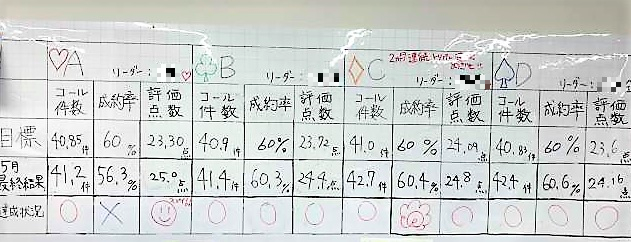 A リーダー： B リーダー： C 2ヶ月連続 リーダー： D リーダー：
コール件数 成約率 評価点数 コール件数 成約率 評価点数 コール件数 成約率 評価点数 コール件数 成約率 評価点数
目標 40.85件 60% 23.30点 40.9件 60% 23.72点 41.0件 60% 24.09点 40.83件 60% 23.6点
5月最終結果 41.2件 56.3% 25.0点 41.4件 60.3% 24.4点 42.7件 60.4% 24.8点 42.4件 60.6% 24.16点
達成状況 ○ × ○ ○ ○ ○ ○ ○ ○ ○ ○